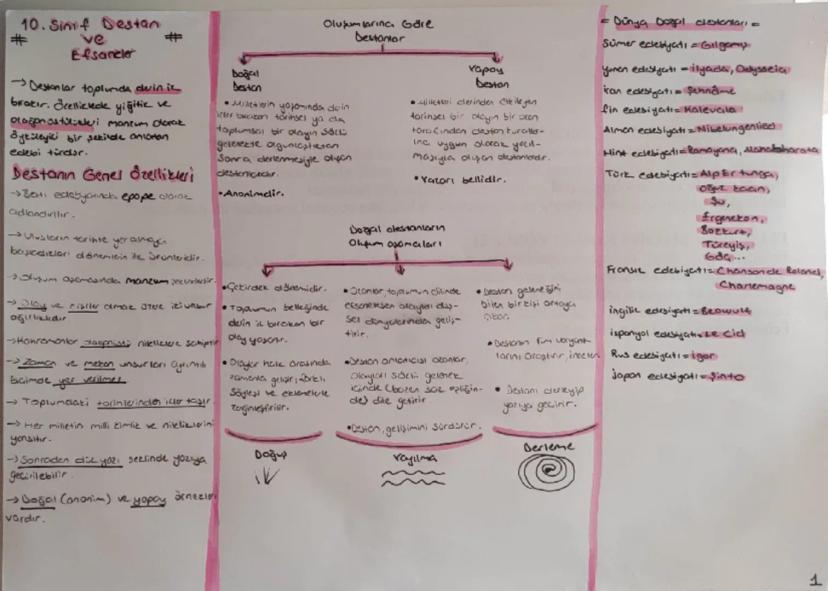 10. Sınıf Destan
# ve #
Efsaneler
→ Destanlar toplumda derin iz
bırakır. Özellikle de yiğitlik ve
olağanüstülükleri manzum olarak
öyküleyici bir şekilde anlatan
edebi türdür.
Destanın Genel Özellikleri
→ Batı edebiyatında epope olarak
adlandırılır.
→ Ulusların tarihte yer almaya
başladıkları dönemlerin ilk ürünleridir.
→ Oluşum aşamasında manzum
→ Olay ve kişiler olmak üzere iki unsur
ağırlıktadır
→ Kahramanlar olağanüstü niteliklere sahiptir
→ Zaman ve mekan unsurları ayrıntılı
biçimde yer verilmez
→ Toplumdaki izler taşır.
→ Her milletin milli kimlik ve niteliklerini
yansıtır.
→ Sonradan düz yazı şeklinde yazıya
geçirilebilir.
→ Doğal (anonim) ve yapay örnekleri
vardır.
Oluşumlarına Göre
Destanlar
Doğal
Destan
• Milletlerin yaşamında derin
izler bırakan tarihsel ya da
toplumsal bir olayın sözlü
gelenekte olgunlaştıktan
sonra derlenmesiyle oluşan
destanlardır.
• Anonimdir.
Yapay
Destan
• Milletleri derinden etkileyen
tarihsel bir olayın bir ozan
tarafından destan kuralları-
na uygun olarak yazıl-
masıyla oluşan destanlardır.
• Yazarı bellidir.
Doğal destanların
Oluşum aşamaları
• Çekirdek dönemidir.
• Toplumun belleğinde
derin iz bırakan bir
olay yaşanır.
• Olaylar halk arasında
zamanla gelişir,
söyleyiş ve eklemelerle
zenginleştirilir.
Doğuş
• Ozanlar, toplumun dilinde
efsaneleşen olayları düş-
sel dünyalarında geliş-
tirir.
• Destan anlatıcısı ozanlar,
olayları sözlü gelenek
içinde (bazen saz eşliğin-
de) dile getirir
• Destan, gelişimini sürdürür.
Yayılma
• Destan geleneğini
bilen bir kişi ortaya
çıkar.
• Destanın tüm varyant-
larını araştırır, inceler
• Destanı derleyip
yazıya geçirir.
Derleme
= Dünya Doğal destanları =
Sümer edebiyatı = Gılgamış
Yunan edebiyatı = İlyada, Odysseia
İran edebiyatı = Şehnâme
Fin edebiyatı = Kalevala
Alman edebiyatı = Nibelungenlied
Hint edebiyatı = Ramayana, Mahabharata
Türk edebiyatı = Alp Er tunga,
Oğuz kağan,
Şu,
Ergenekon,
Bozkurt,
Türeyiş,
Göç...
Fransız edebiyatı = Chanson de Roland,
Charlemagne
İngiliz edebiyatı = Beowulf
İspanyol edebiyatı = Le Cid
Rus edebiyatı = İgor
Japon edebiyatı = Şinto
1